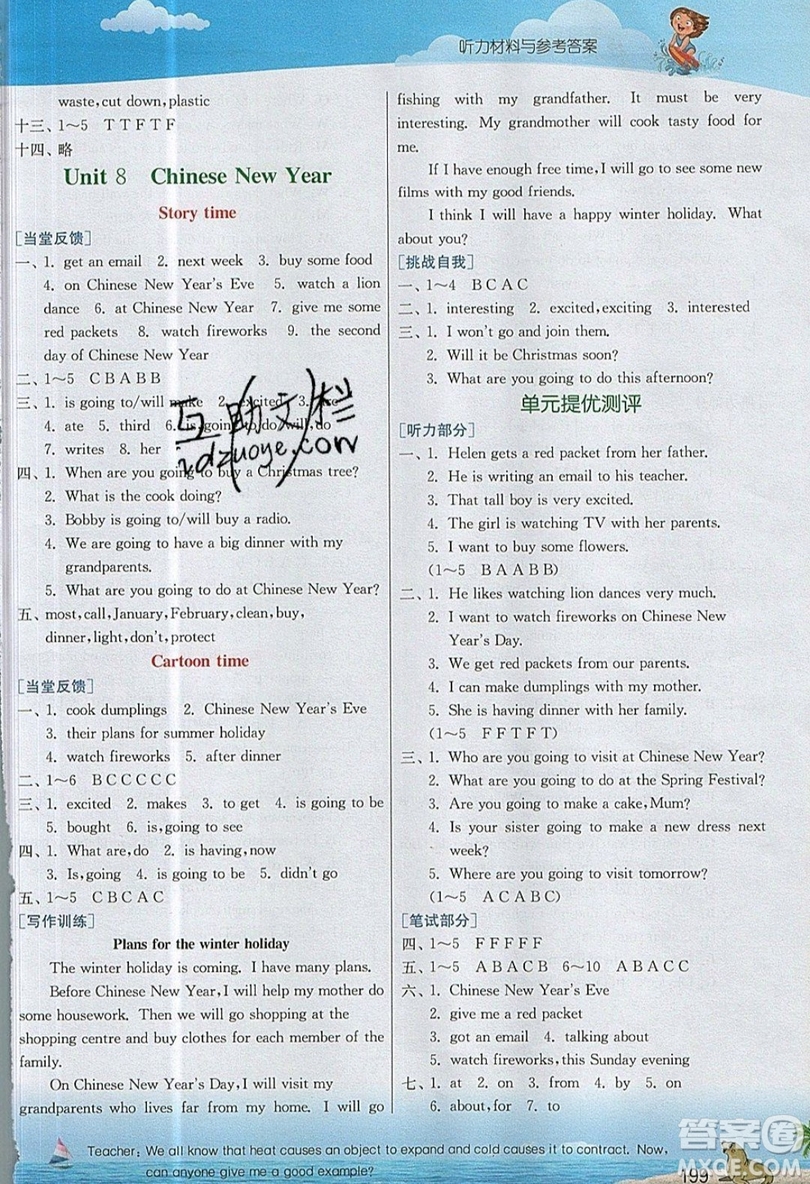 听力材料与参考答案
waste,cut down,plastic
十三、1～5 T T F T F
十四、略
Unit 8 Chinese New Year
Story time
[当堂反馈]
一、1. get an email 2. next week 3. buy some food
4. on Chinese New Year's Eve 5. watch a lion
dance 6. at Chinese New Year 7. give me some
red packets 8. watch fireworks 9. the second
day of Chinese New Year
二、1～5 C B A B B
三、1. is going to/will make 2. excited 3. to
4. ate 5. third 6. is going to do/will,do
7. writes 8. her
四、1. When are you going to buy a Christmas tree?
2. What is the cook doing?
3. Bobby is going to/will buy a radio.
4. We are going to have a big dinner with my
grandparents.
5. What are you going to do at Chinese New Year?
五、most,call,January,February,clean,buy,
dinner,light,don't,protect
Cartoon time
[当堂反馈]
一、1. cook dumplings 2. Chinese New Year's Eve
3. their plans for summer holiday
4. watch fireworks 5. after dinner
二、1～6 B C C C C C
三、1. excited 2. makes 3. to get 4. is going to be
5. bought 6. is,going to see
四、1. What are,do 2. is having,now
3. Is,going 4. is going to be 5. didn't go
五、1～5 C B C A C
[写作训练]
Plans for the winter holiday
The winter holiday is coming. I have many plans.
Before Chinese New Year,I will help my mother do
some housework. Then we will go shopping at the
shopping centre and buy clothes for each member of the
family.
On Chinese New Year's Day,I will visit my
grandparents who lives far from my home. I will go
fishing with my grandfather. It must be very
interesting. My grandmother will cook tasty food for
me.
If I have enough free time,I will go to see some new
films with my good friends.
I think I will have a happy winter holiday. What
about you?
[挑战自我]
一、1～4 B C A C
二、1. interesting 2. excited,exciting 3. interested
三、1. I won't go and join them.
2. Will it be Christmas soon?
3. What are you going to do this afternoon?
单元提优测评
[听力部分]
一、1. Helen gets a red packet from her father.
2. He is writing an email to his teacher.
3. That tall boy is very excited.
4. The girl is watching TV with her parents.
5. I want to buy some flowers.
(1～5 B A A B B)
二、1. He likes watching lion dances very much.
2. I want to watch fireworks on Chinese New
Year's Day.
3. We get red packets from our parents.
4. I can make dumplings with my mother.
5. She is having dinner with her family.
(1～5 F F T F T)
三、1. Who are you going to visit at Chinese New Year?
2. What are you going to do at the Spring Festival?
3. Are you going to make a cake,Mum?
4. Is your sister going to make a new dress next
week?
5. Where are you going to visit tomorrow?
(1～5 A C A B C)
[笔试部分]
四、1～5 F F F F F
五、1～5 A B A C B 6～10 A A B C C
六、1. Chinese New Year's Eve
2. give me a red packet
3. got an email 4. talking about
5. watch fireworks,this Sunday evening
七、1. at 2. on 3. from 4. by 5. on
6. about,for 7. to
互助文栏
idzuoye.com
Teacher: We all know that heat causes an object to expand and cold causes it to contract. Now,
can anyone give me a good example?
199
答案圈
MXQE.COM